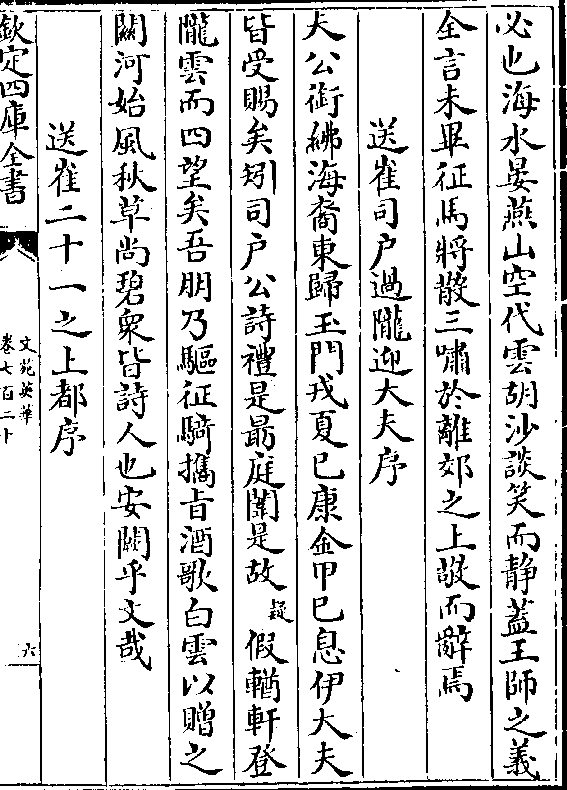 必也海水晏燕山空代雲胡沙談笑而静蓋王師之義
全言未畢征馬將散三嘯於離郊之上敬而辭焉
送崔司户過隴迎大夫序
大公銜紼海裔東歸玉門戎夏已康金甲已息伊大夫
皆受賜矣矧司户公詩禮是最庭闈是故疑假輶軒登
隴雲而四望矣吾朋乃驅征騎攜旨酒歌白雲以贈之
關河始風秋草尚碧衆皆詩人也安闕乎文哉
送崔二十一之上都序
欽定四庫全書
文苑英華
卷七百二十
六